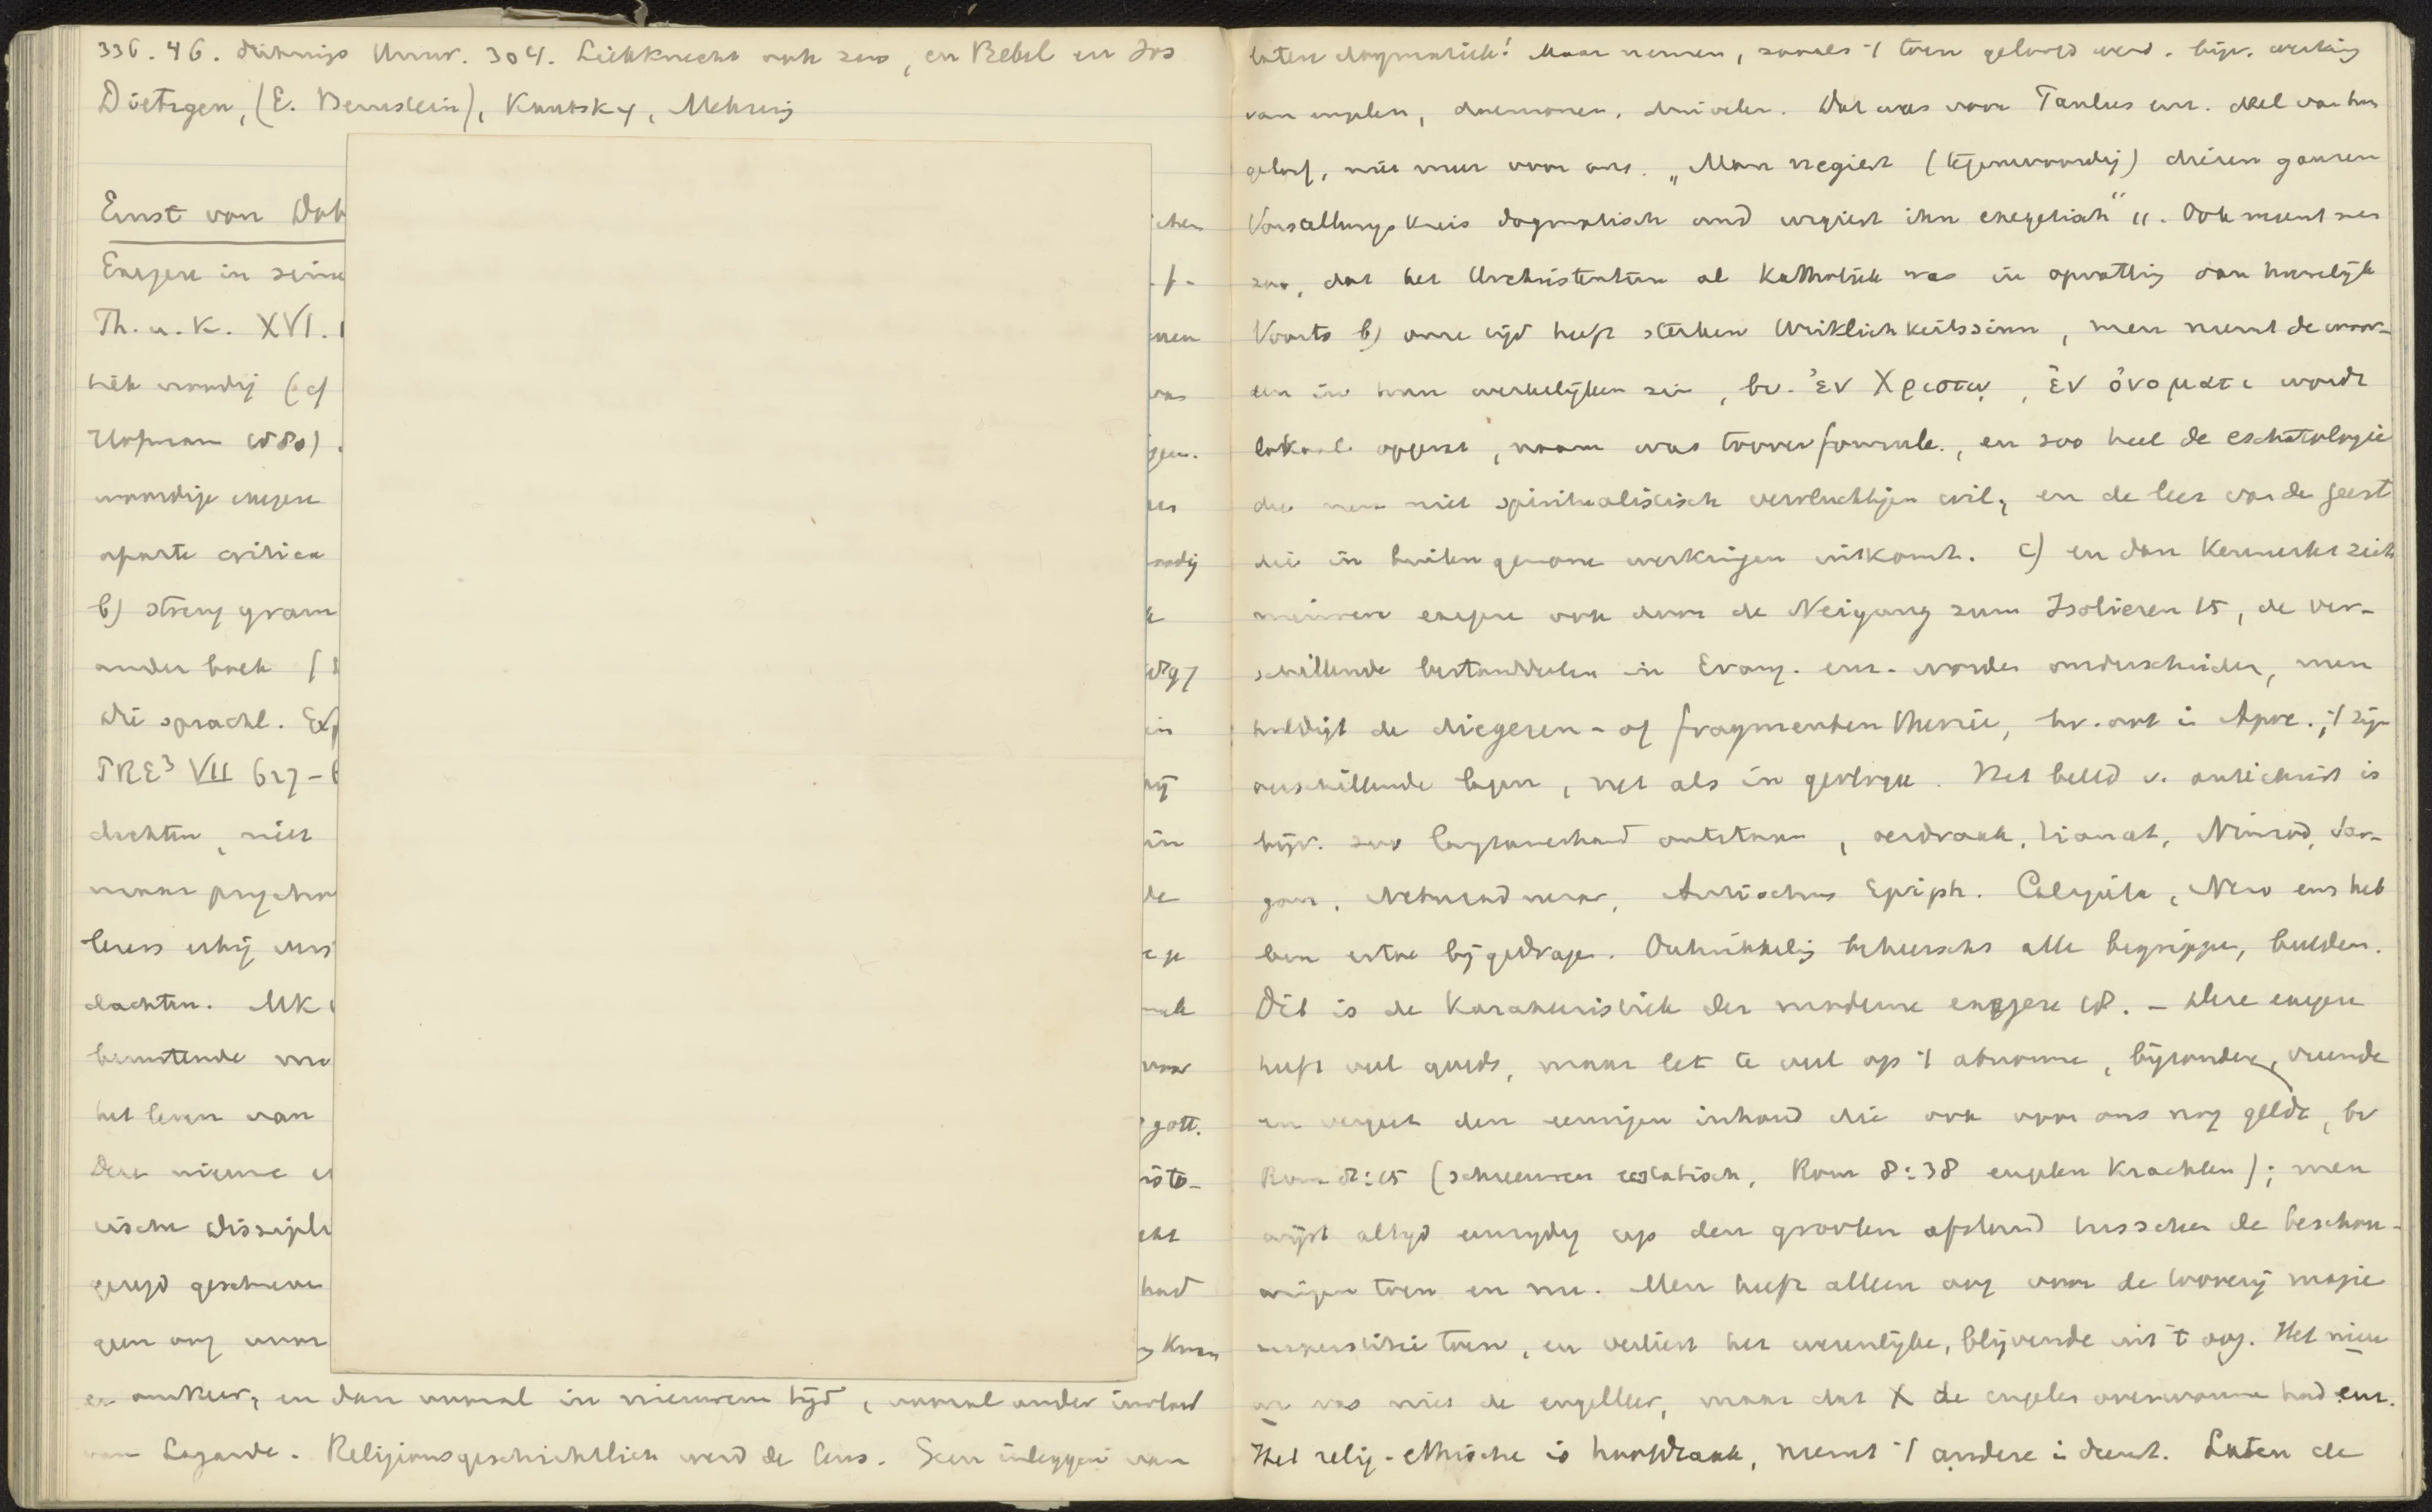 336. 46. Univ. 304. Liebknecht ook zoo, en Bebel en Jos
Dietzgen, (E. Bernstein), Kautsky, Mehring
Ernst von Dob
Exegese in seine
Th. u. K. XVI.
tiek noodig (cf
Hofmann (1880).
woordige exegese
aparte critica
b) streng gram
ander boek
die sprachl. Exp
PRE³ VII 627-6
dachten, niet
maar psycho
lezers erbij
dachten. Mk
het leven van
Deze nieuwe
rische Disciplin
gewijd
geen oog voor
chen
-f-
nen
gen.
oodig
k
1897
in
hij
in
de
voor
gott.
isto-
had
en dan vooral in nieuweren tijd, vooral onder invloed
van Lagarde. Religionsgeschichtlich werd de leus. Geen inleggen van
laten dogmatiek! Maar nemen, zooals 't toen geloofd werd. bijv. werking
van engelen, daemonen, duivelen. Dat was voor Paulus enz. deel van hun
geloof, niet meer voor ons. „Man negiert (tegenwoordig) diesen ganzen
Vorstellungskreis dogmatisch und urgiert ihn exegetisch" 11. Ook meent men
zoo, dat het Urchristentum al Katholiek was in opvatting van huwelijk
Voorts b) onze tijd heeft sterken Wirklichkeitssinn, men neemt de woor-
den in hun werkelijken zin, bv. ἐν Χριστῳ, ἐν ὀνοματι wordt
lokaal opgevat, naam was tooverformule, en zoo heel de eschatologie
die men niet spiritualistisch vervluchtigen wil, en de leer van de geest
die in buitengewone werkingen uitkomt. c) en dan kenmerkt zich
nieuwere exegese ook door de Neigung zum Isolieren 15, de ver-
schillende bestanddeelen in Evang. enz. worden onderscheiden, men
huldigt de diegesen- of fragmententheorie, bv. ook in Apoc.; 't zijn
verschillende lagen, net als in geologie. Het beeld v. antichrist is
bijv. zoo langzamerhand ontstaan, oerdraak, Tiamat, Nimrod, Sar-
gon, Nebucadnezar, Antiochus Epiph. Caligula, Nero enz heb
ben ertoe bijgedragen. Ontwikkeling beheerscht alle begrippen, beelden.
Dit is de Karakteristiek der moderne exegese 18. - Deze exegese
heeft veel goeds, maar let te veel op 't abnorme, bijzondere, vreemde
en vergeet den eeuwigen inhoud die ook voor ons nog geldt, bv
Rom 8:15 (schreeuwen ecstatisch, Rom 8:38 engelen Krachten); men
wijst altijd eenzijdig op den grooten afstand tusschen de beschou-
wingen toen en nu. Men heeft alleen oog voor de tooverij magie
superstitie toen, en verliest het wezenlijke, blijvende uit 't oog. Het nieu
we was niet de engelleer, maar dat X de engelen overwonnen had enz.
Het relig-ethische is hoofdzaak, neemt 't andere in dienst. Laten de